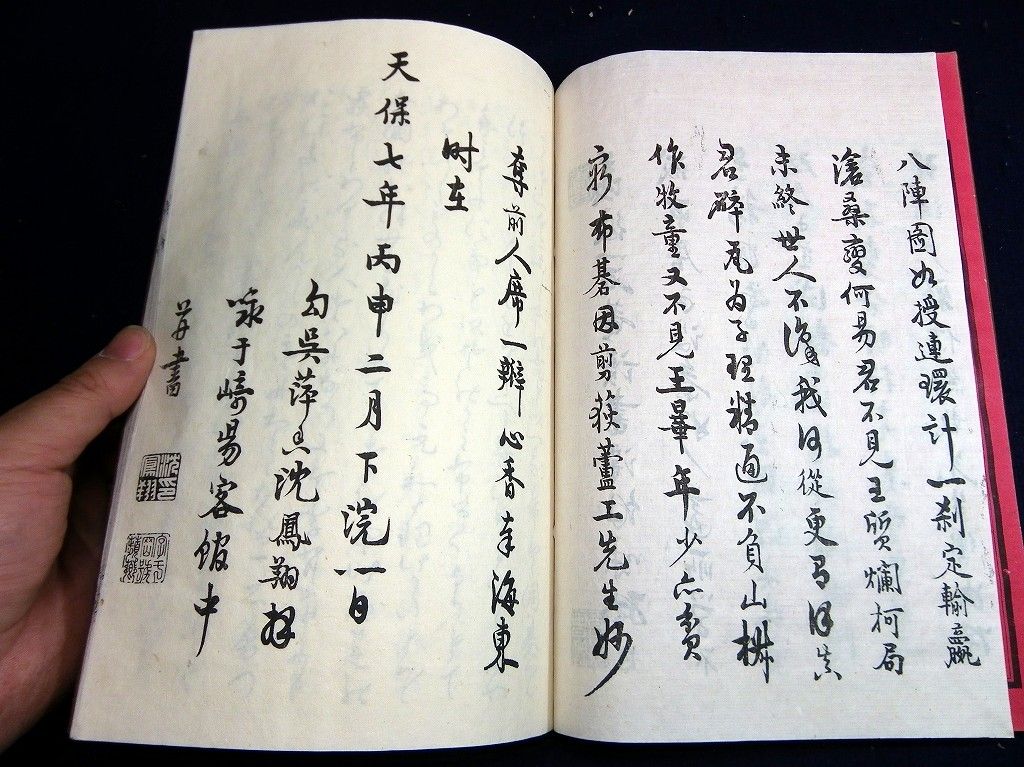 八陣圖如授連環計一刹定輸贏
滄桑變何易君不見王質爛柯局
未終世人不識我何從更有得真
君礔瓦為子理精通不負山樵
作牧童又不見王畢年少亦貧
窮布碁因剪荻蘆工先生妙
奪前人席一瓣心香奉海東
时在
天保七年丙申二月下浣一日
勾吳萍香沈鳳翔拜
咏于崎陽客館中
并書
沈印鳳翔